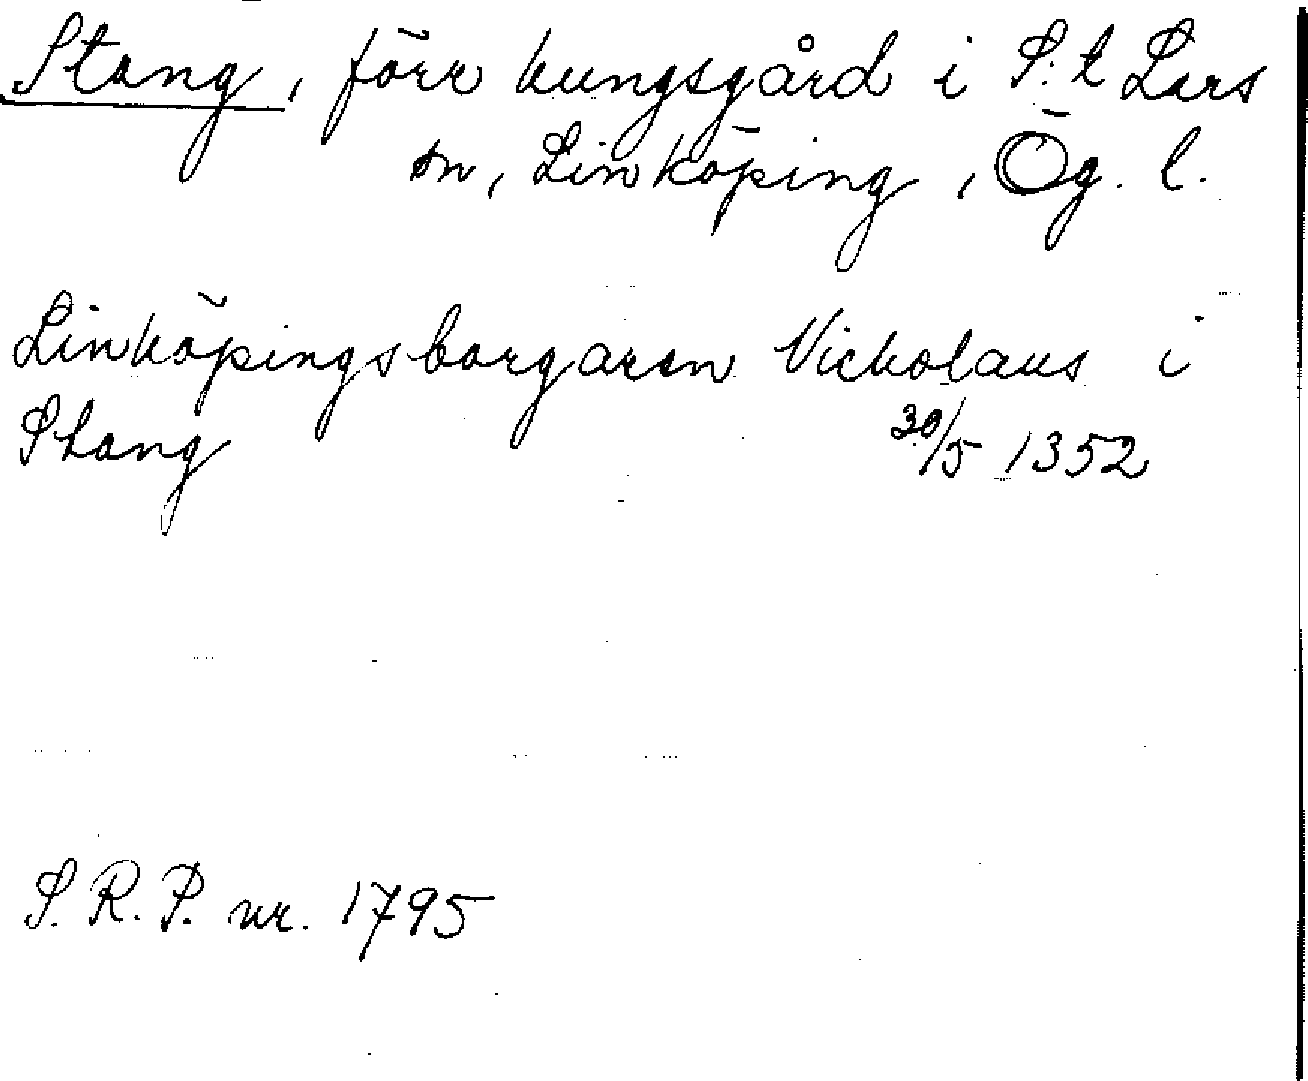 Stang, förr kungsgård i S:t Lars
sn, Linköping, Ög. l.
Linköpingsborgaren Nickolaus i
Stang 30/5 1352
S.R.P. nr. 1795